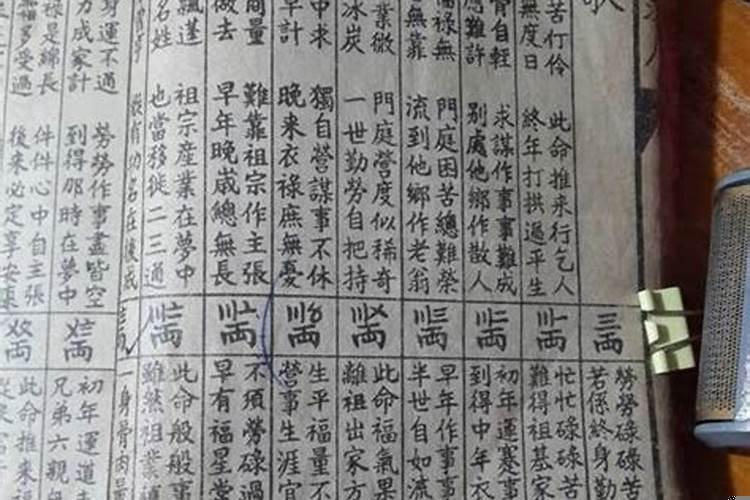 苦仃伶　此命推来行乞人
無度日　終年打拱過平生
骨自輕　求謀作事事難成
應難許　別處他鄉作散人
福祿無　門庭困苦總難榮
無靠　流到他鄉作老翁
業微　門庭營度似稀奇
冰炭　一世勤勞自把持
中求　獨自營謀事不休
早計　晚来衣祿庶無憂
商量　難靠祖宗作主張
做去　早年晚歲總無長
飄蓬　祖宗產業在夢中
名姓　也當移徙二三通
功名在後成
身運不通　勞勞作事盡皆空
力成家計　到得那時在夢中
祿是綿長　件件心中自主張
福多受過　後来必定享安康
三両
〣一両
〣二両
〣三両
〣〤両
〣〥両
〣〦両
〣〧両
勞勞碌碌苦
若係終身勤
忙忙碌碌苦
難得祖基家
初年運蹇事
到得中年衣
早年作事事
半世自如流
此命福氣果
離祖出家方
生平福量不
營事生涯宜
不須勞碌過
早有福星常
此命般般事
雖然祖業
一身骨肉
初年運道
兄弟六親
此命推来福